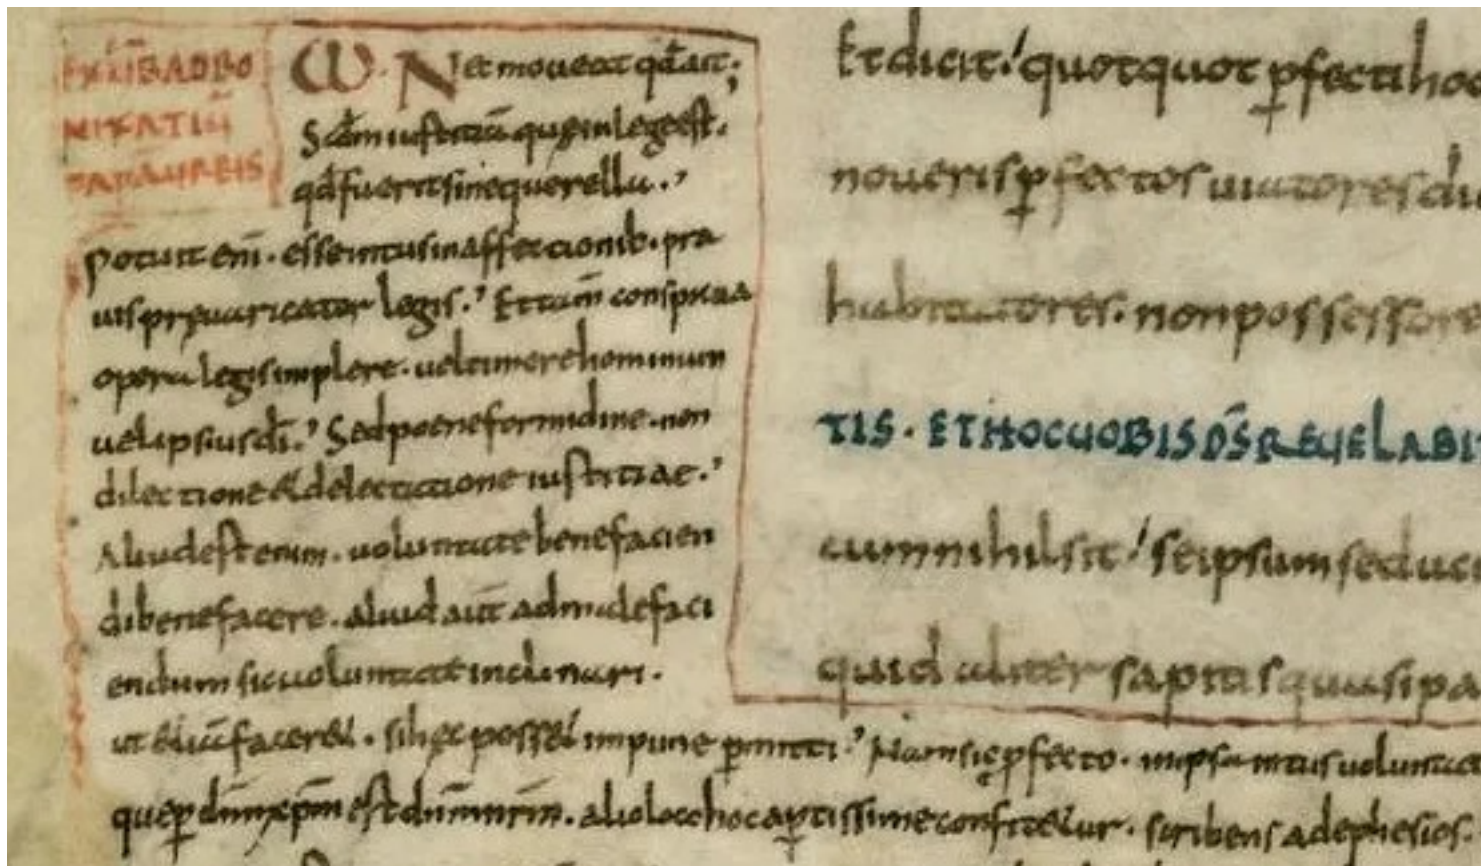 EX LIB AD BO
NIFATIŪ
PAPĀ URBIS
ω. Nec moueat qđ ait.,
Scđm iustitiā quę in lege est.
qđ fuerit sine querella.,
potuit enī. esse intus in affectionib. pra
uis pręuaricator legis., Et tam̄ conspicua
opera legis implere. uel timore hominum
uel ipsius dī., Sed poene formidine. non
dilectione & delectatione iustitiae.,
Aliud est enim. uoluntate benefacien
di benefacere. aliud aut̄ ad malefaci
endum sic uoluntate inclinari.
ut etiā faceret. si hęc posset impune ꝑmitti., Nam sic ꝓfecto. in ipsa intus uoluntate
que ꝑ dn̄m xp̄m est dn̄m nr̄m. alio loco hoc aptissime confitetur. scribens ad ephesios.
Et dicit. quotquot ꝑfecti hoc
noueris ꝑfectos uiatores
habitatores. non possessore
TIS. ET HOC UOBIS D̄S REUELABIT
cum nihil sit. se ipsum seduc
quid aliter sapitis quasi pa